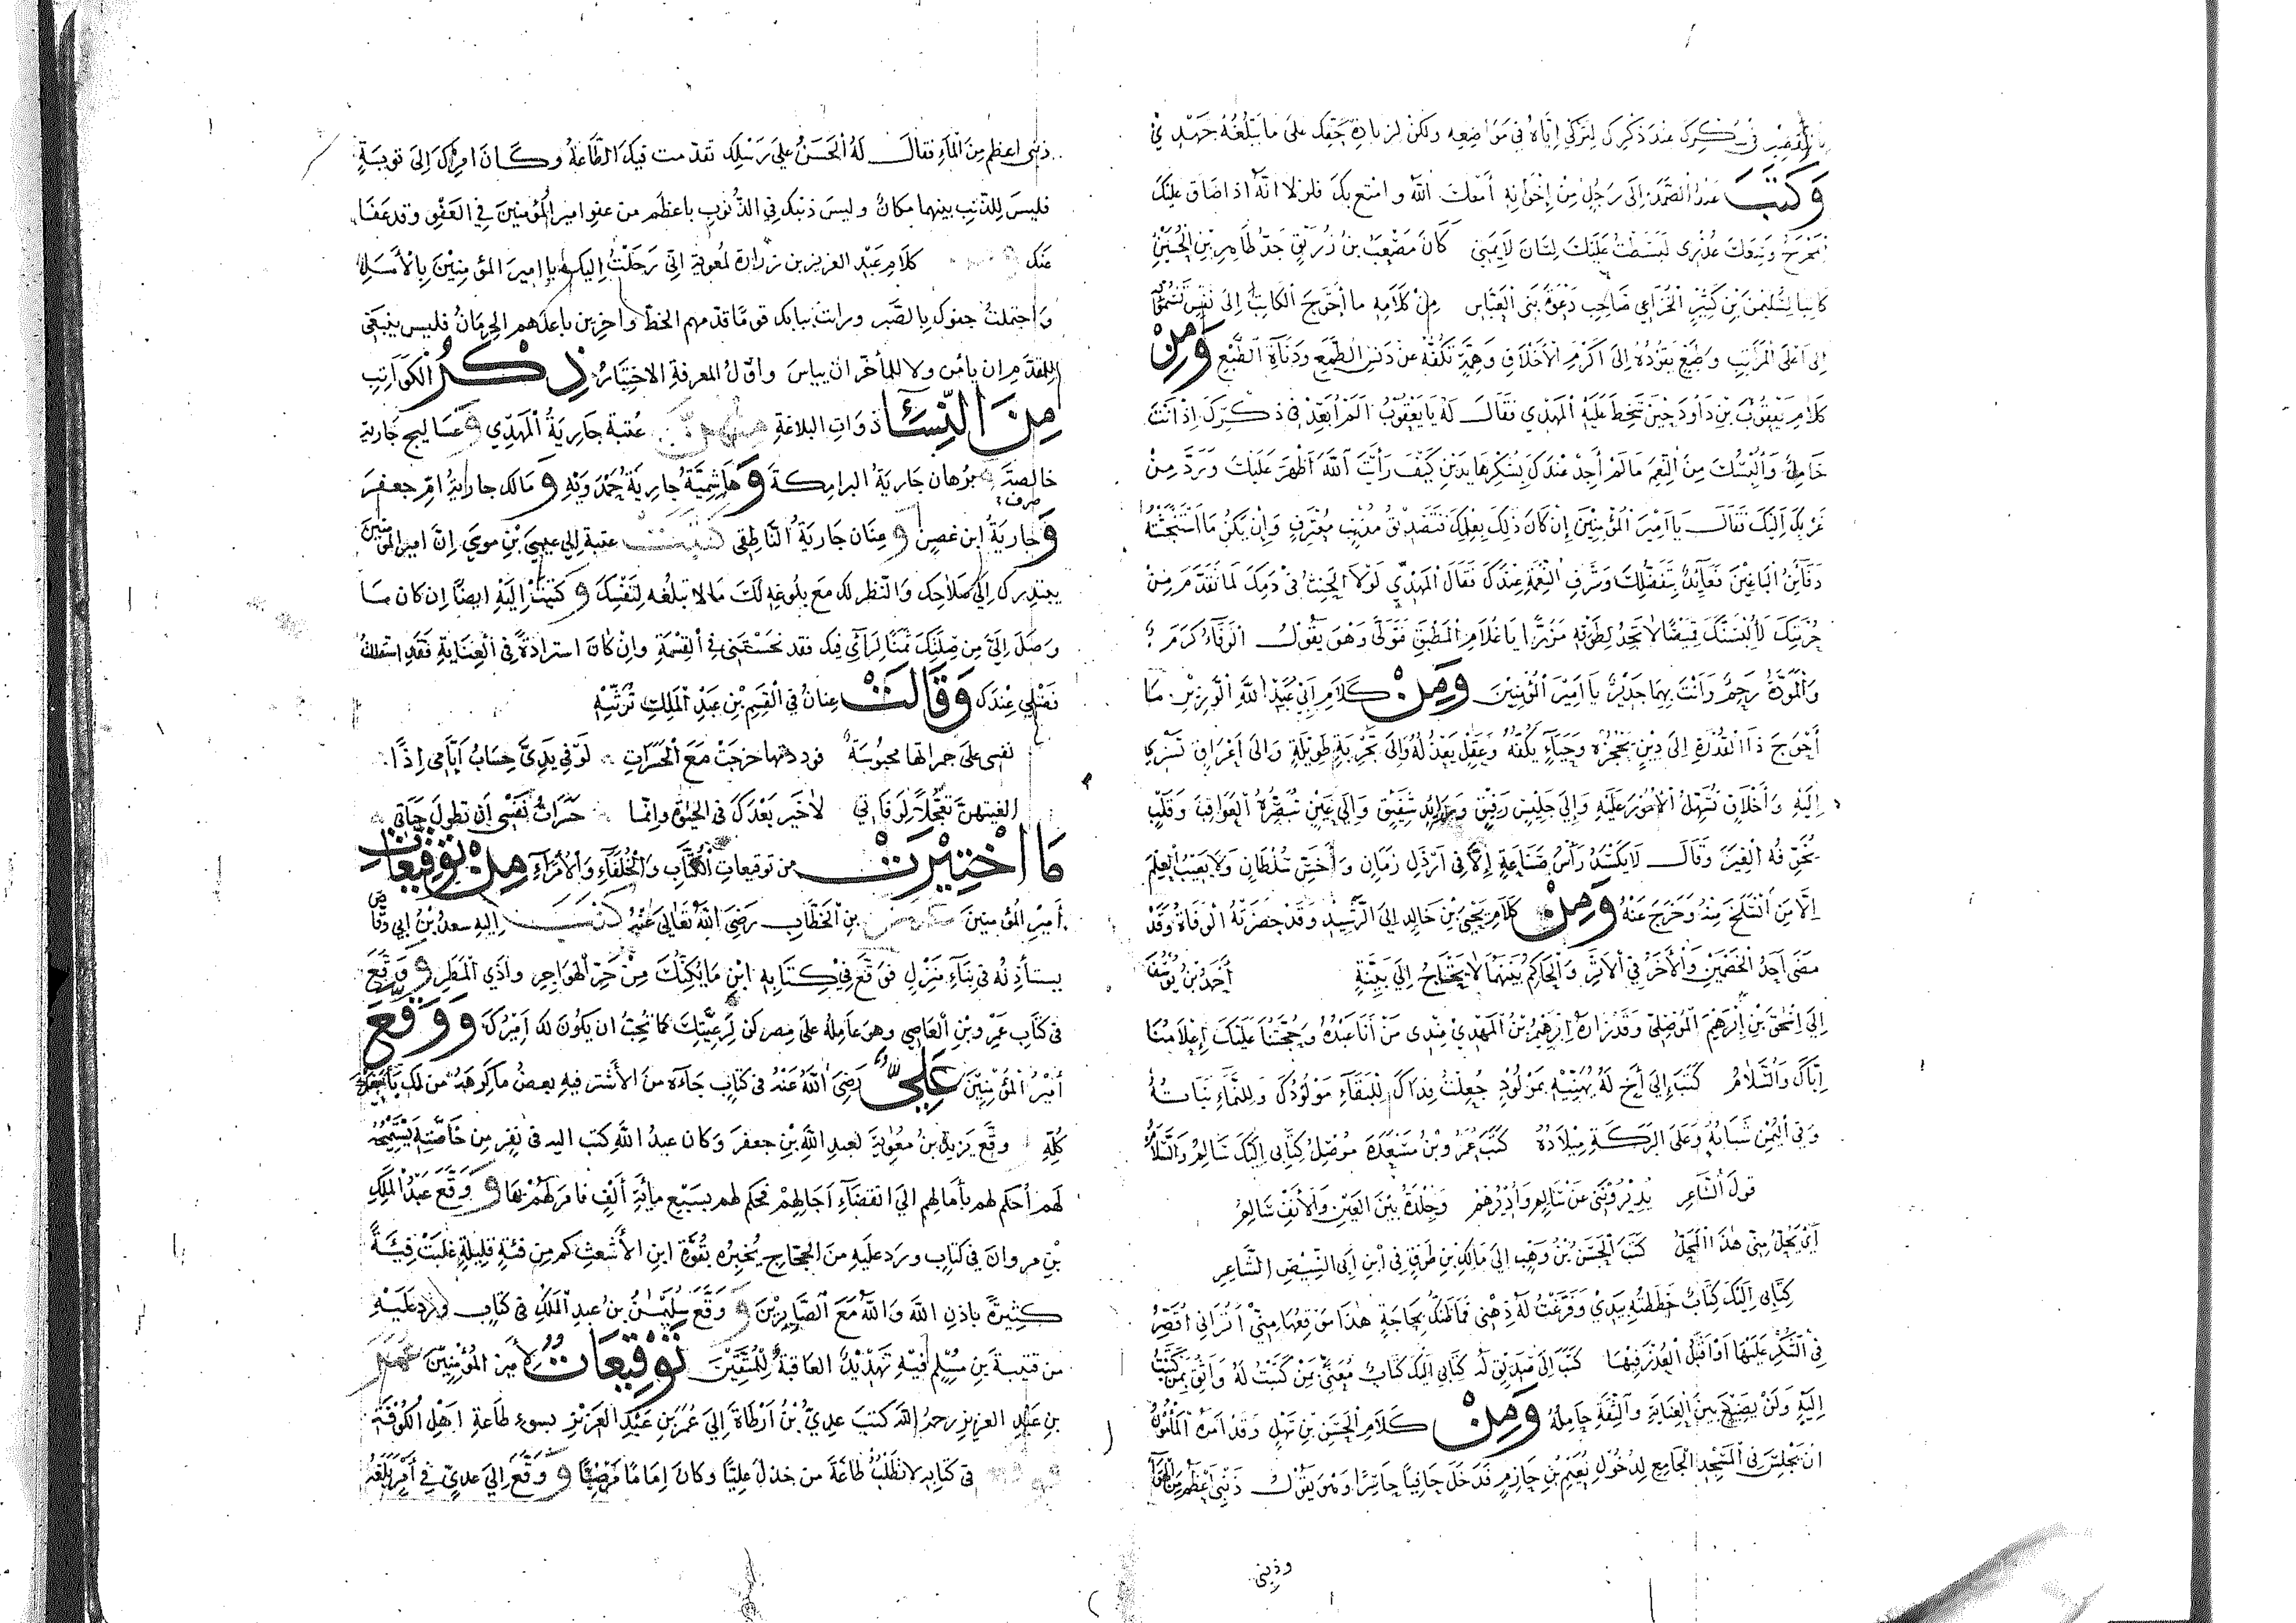 في شكرك عند ذكرك لتركي إياه في مواضعه ولكن لزيادة حقك على ما يبلغه جهدي
وَكَتَبَ عبد الصمد إلى رجل من إخوانه أمتعك الله وامتع بك فلولا انه اذا ضاق عليك
المخرج عذرى لبسطت عليك لسان لايمنى كان مصعب بن زريق جد طاهر بن الحسين
كاتبا لسليمن بن كثير الخزاعي صاحب دعوة بنى العباس من كلامه ما أحوج الكاتب إلى نفس تسمو
إلى أعلى المراتب وطبع يقوده إلى أكرم الاخلاق وهمة تكفه عن دنس الطمع ودنآة الطبع وَمِنْ
كلام يعقوب بن داود حين سخط عليه المهدي فقال له يا يعقوب الم في ذكرك إذ انت
خامل وألبستك من النعم مالم أجد عندك بشكرها يدين كيف رأيت الله أظهر عليك ورد من
إليك فقال يا أمير المؤمنين إن كان ذلك بعلمك فتصديق مذنب معترف وإن يكن ما استنتجته
دفائن الباغين فعائذ بتفضلك وشرف النعمة عندك فقال المهدي لولا الحنث في دمك لما تقدم من
حرمتك لألبستك قميصًا لا تجد لطوقه مزرًّا يا غلام المطبق فتولى وهو يقول الوفاء كرم
والمودة رحم وأنت بهما جدير يا أمير المؤمنين وَمِنْ كلام أبي عبيد الله الوزير ما
أحوج ذا القدرة إلى دين يحجزه وحياء يكفه وعقل يعدله وإلى تجربة طويلة وإلى أعراق
إليه وأخلاق تسهل الأمور عليه وإلى جليس رفيق ورائد شفيق وإلى عين تبصره العواقب وقلب
يخوفه الغير وقال لا يكسد رأس صناعة إلا في أرذل زمان وأخس سلطان ولا يعيب العلم
إلا من انسلخ منه وخرج عنه وَمِنْ كلام يحيى بن خالد إلى الرشيد وقد حضرته الوفاة وقد
مضى أحد الخصمين والآخر في الأثر والحاكم بينهما لا يحتاج إلى بينة أحمد بن يوسف
إلى إسحق بن إبرهيم الموصلى وقد زاره إبرهيم بن المهدي عندى من أنا عبده وحجتنا عليك إعلامنا
إياك والسلام كتب إلى أخ له يهنيه بمولود جعلت فداك للبقاء مولودك وللنماء نباته
وفي اليمن شبابه وعلى البركة ميلاده كتب عمرو بن مسعدة موصل كتابى إليك سالم والسلام
قول الشاعر يديرونني عن سالم وأديرهم وجلدة بين العين والأنف سالم
أي يحل منى هذا المحل كتب الحسن بن وهب إلى مالك بن طوق في ابن أبى الشيص الشاعر
كتابى إليك كتاب خططته بيدي وفرغت له ذهنى فما ظنك بحاجة هذا موقعها منى أتراني أقصر
في الشكر عليها أو أقبل العذر فيها كتب إلى صديق له كتابى إليك كتاب معني بمن كتبت له واثق بمن كتبت
إليه ولن يضيع بين العناية والثقة حامله وَمِنْ كلام الحسن بن سهل وقد امره المأمون
ان يجلس في المسجد الجامع لدخول نعيم بن حازم فدخل حافيًا حاسرًا وهو يقول ذنبى أعظم من السماء
وذنبى
ذنبى اعظم من الماء فقال له الحسن على رسلك تقدمت فيك الطاعة وكان امرك إلى توبةٍ
فليس للذنب بينهما مكان وليس ذنبك في الذنوب باعظم من عفو امير المؤمنين في العفو وقد عفا
عنك كلام عبد العزيز بن زرارة لمعوية انى رحلت إليك يا امير المؤمنين بالأمل
واحتملت جفوك بالصبر ورايت ببابك قومًا قدمهم الحظ وآخرين باعدهم الحرمان فليس ينبغى
للمقدم ان يأمن ولا للمأخر ان ييأس واول المعرفة الاختيار ذِكْرُ الكواتب
مِنَ النِّسَآءِ ذوات البلاغة منهن عتبة جارية المهدي و جارية
خالصة وبرهان جارية البرامكة وَهاشمية جارية حمدويه و مالك جارية ام جعفر
وَجارية ابن غصين وعنان جارية الناطفى كتبت عتبة الى عيسى بن موسى ان امير المؤمنين
إلى صلاحك والنظر لك مع بلوغه لك ما لا تبلغه لنفسك وكتبت إليه ايضًا ان كان ما
وصل إليّ من صلتك ثمنًا لرأي فيك فقد بخستني في القسمة وان كان استزادة في العناية فقد
عندك وَقَالَتْ عنان في القسم بن عبد الملك ترثيه
نفسى على حسراتها محبوسة فوددتها خرجت مع الحسرات لو في يدي حساب أيامى إذًا
ألفيتهن تعجلًا لوفاتي لا خير بعدك في الحيوة وانما حسرات نفسى أن تطول حياتى
مَا اخْتِيرَتْ من توقيعات الكتاب والخلفاء والأمراء مِنْ تَوْقِيعَاتِ
أمير المؤمنين عمر بن الخطاب رضى الله تعالى عنه كتب إليه سعد بن ابى وقاص
يستأذنه في بناء منزل فوقع في كتابه ابن ما يكنك من حر الهواجر وأذى المطر وَوقع
في كتاب عمرو بن العاصى وهو عامله على مصر كن لرعيتك كما تحب ان يكون لك أميرك وَوَقَّعَ
أمير المؤمنين عَلِيٌّ رضى الله عنه في كتاب جاءه من الأشتر فيه بعض ما كره من لك بأخيك
كله وقّع يزيد بن معوية لعبد الله بن جعفر وكان عبد الله كتب اليه في نفر من خاصته
لهم أحكم لهم بآمالهم الى انقضاء آجالهم فحكم لهم بسبع مائة ألف فامر لهم بها ووقّع عبد الملك
بن مروان في كتاب ورد عليه من الحجاج يخبره بقوة ابن الأشعث كم من فئة قليلة غلبت فئة
كثيرة باذن الله والله مع الصابرين و وقّع سليمان بن عبد الملك في كتاب ورد عليه
من قتيبة بن مسلم فيه تهديد العاقبة للمتقين تَوْقِيعَاتٌ لأمير المؤمنين عمر
بن عبد العزيز رحمه الله كتب عدي بن ارطاة إلى عمر بن عبد العزيز بسوء طاعة اهل الكوفة
فوقع في كتابه لا تطلب طاعة من خذل عليًّا وكان إمامًا مرضيًّا و وقّع إلى عدي في أمر